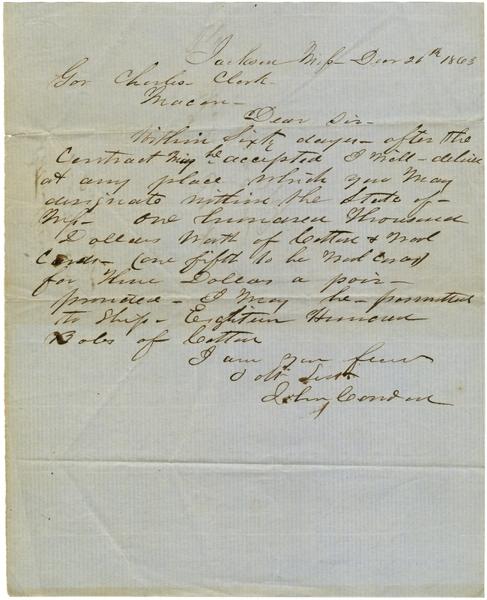 Jackson Miss Decr 26th 1863
Gov Charles Clark
Macon
Dear Sir
Within Sixty days after the
Contract May be accepted I will deliver
at any place which you May
designate within the State of
Miss one hundred Thousand
Dollars Worth of Cotton & Wool
Cards (one fifth to be Wool Cards)
for Nine Dollars a pair
provided I May be permitted
to Ship Eighteen Hundred
Bales of Cotton
I am your
Obt Sevt
John Condon